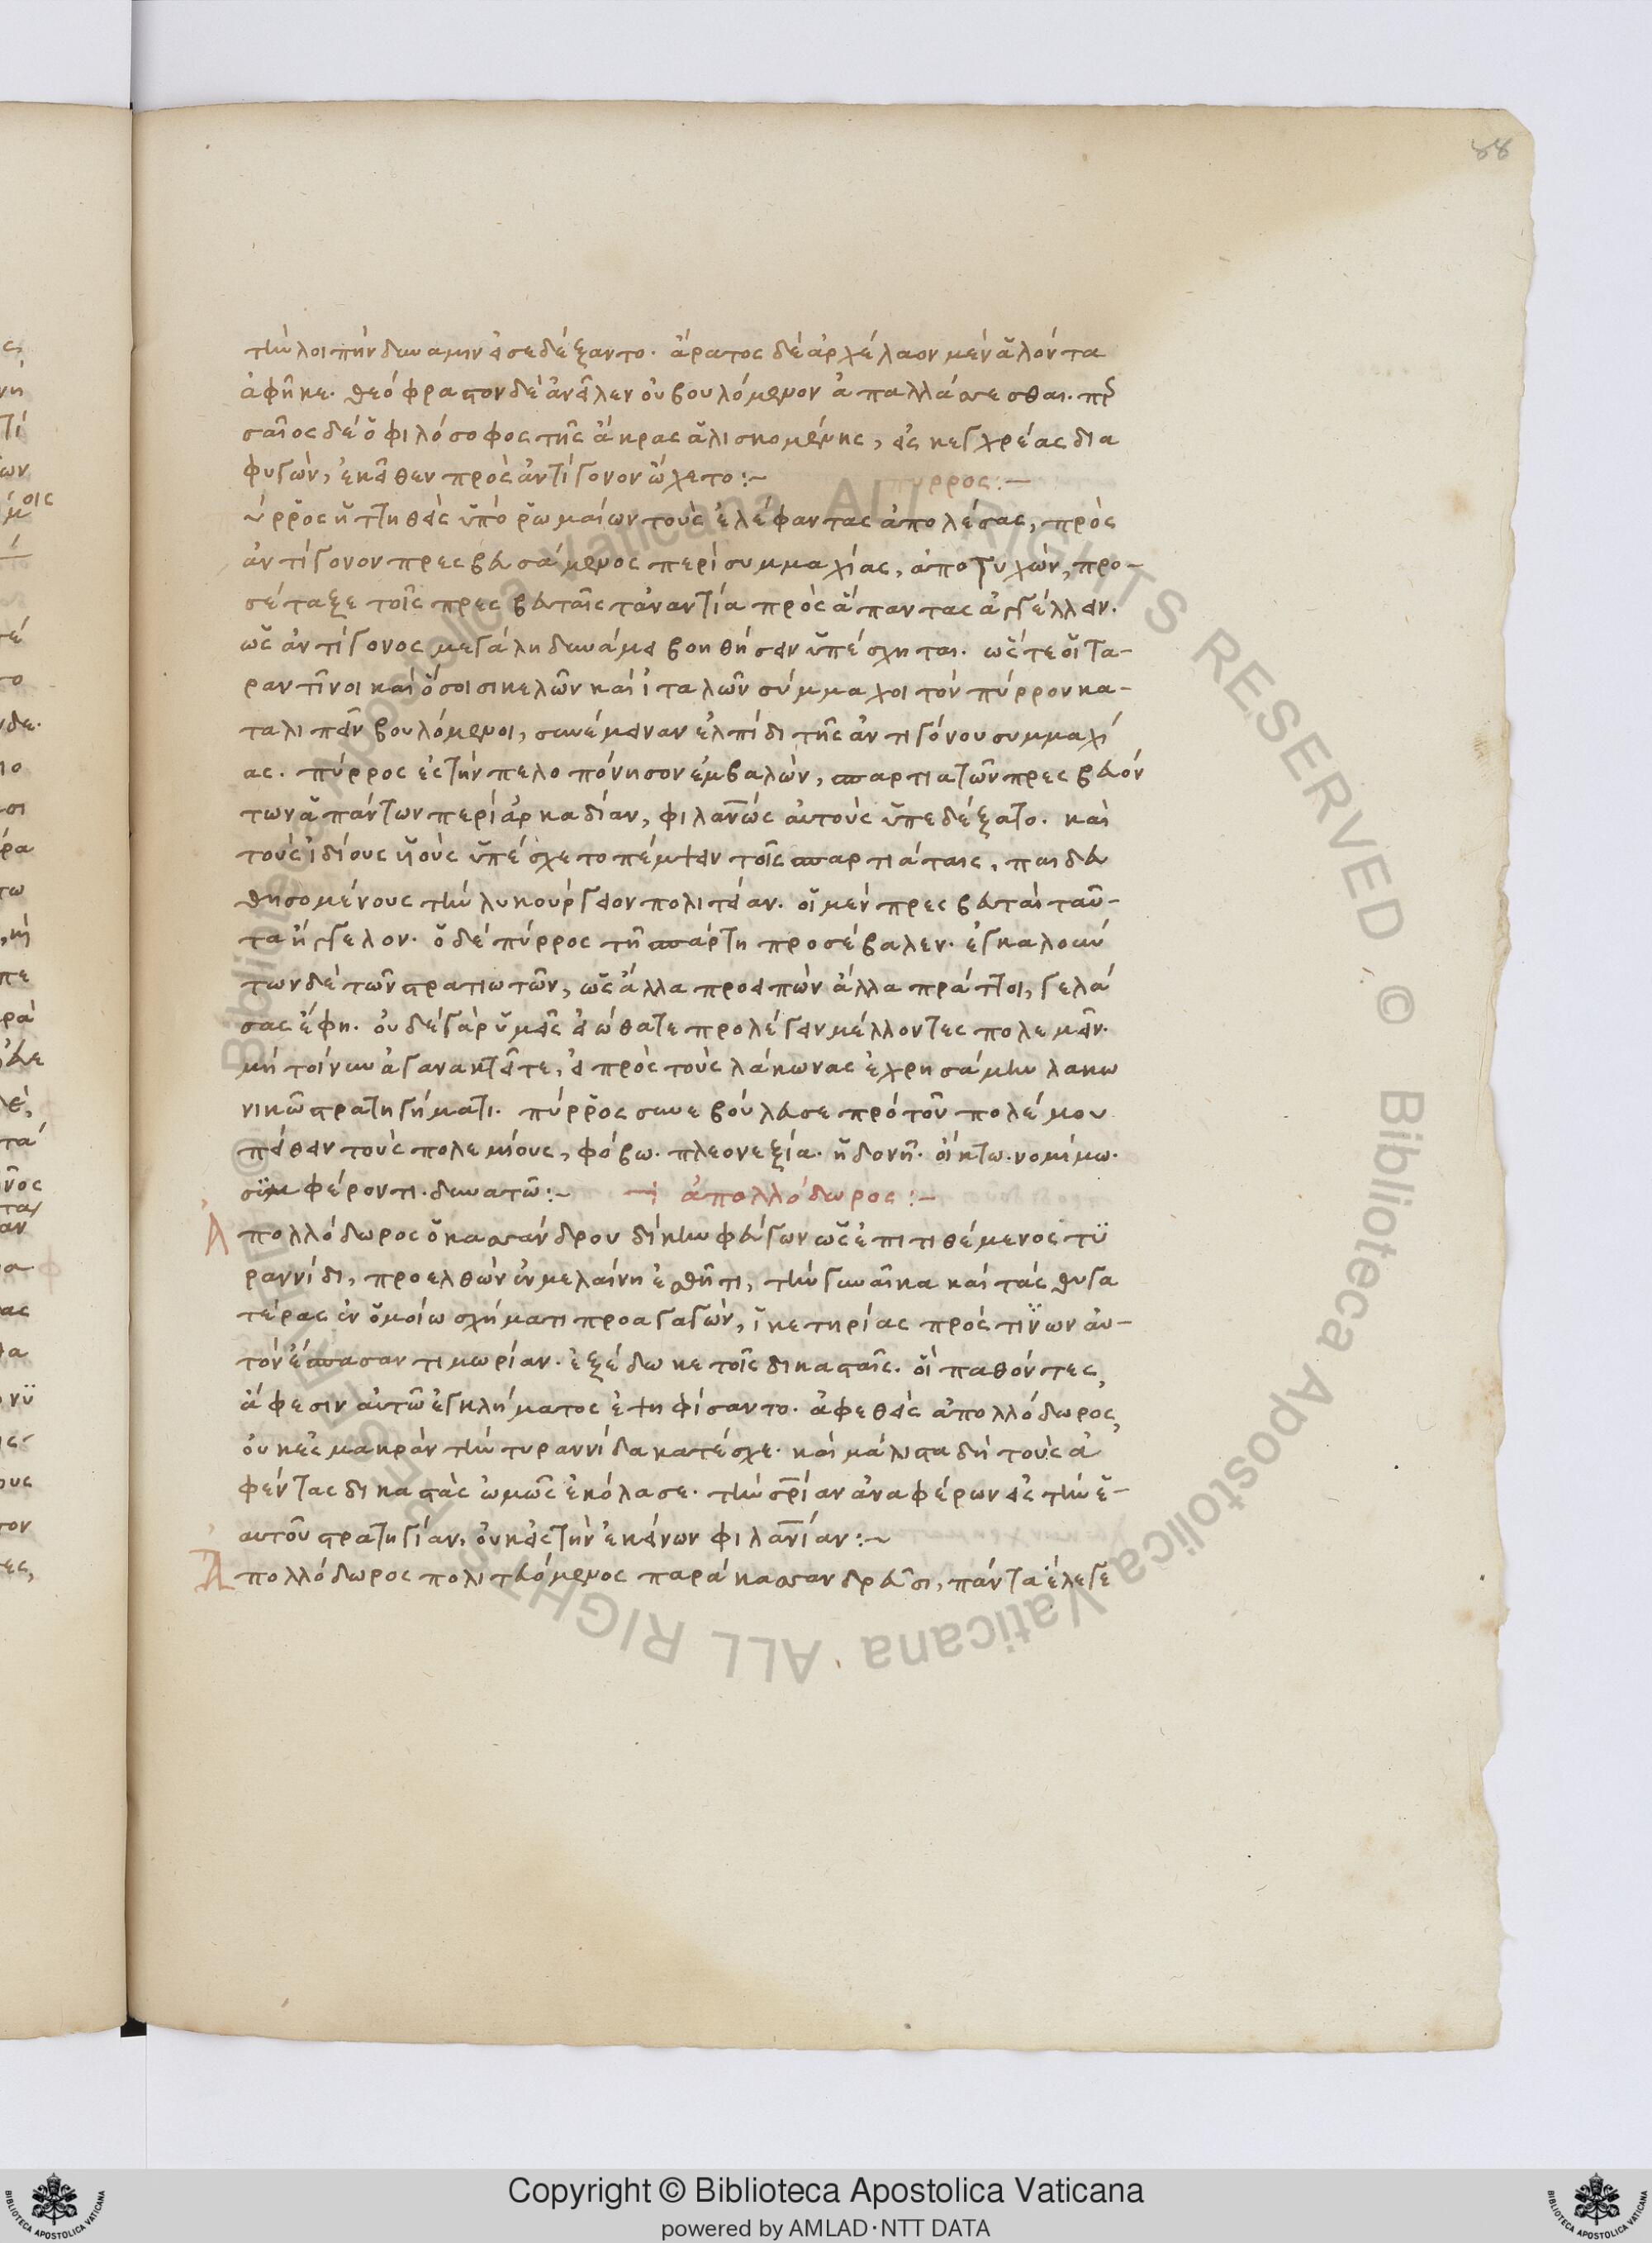 88
τὴν λοιπὴν δύναμιν εἰσεδέξαντο. ἄρατος δὲ ἀρχέλαον μὲν ἁλόντα
ἀφῆκε. θεόφραστον δὲ ἀνεῖλεν οὐ βουλόμενον ἀπαλλάσσεσθαι. περ
σαῖος δὲ ὁ φιλόσοφος τῆς ἄκρας ἁλισκομένης, εἰς κεγχρέας δια
φυγὼν, ἐκεῖθεν πρὸς ἀντίγονον ᾤχετο:~ πυρρος:~
ύρρος ἡττηθεὶς ὑπὸ ῥωμαίων τοὺς ἐλέφαντας ἀπολέσας, πρὸς
ἀντίγονον πρεσβευσάμενος περὶ συμμαχίας, ἀποτυχὼν, προ-
σέταξε τοῖς πρεσβευταῖς τἀναντία πρὸς ἅπαντας ἀγγέλλειν.
ὡς ἀντίγονος μεγάλη δυνάμει βοηθήσειν ὑπέσχηται. ὥστε οἱ τα-
ραντῖνοι καὶ ὅσοι σικελῶν καὶ ἰταλῶν σύμμαχοι τὸν πύρρον κα-
ταλιπεῖν βουλόμενοι, συνέμειναν ἐλπίδι τῆς ἀντιγόνου συμμαχί
ας. πύρρος ἐς τὴν πελοπόνησον ἐμβαλὼν, σπαρτιατῶν πρεσβευόν
των ἁπάντων περὶ ἀρκαδίαν, φιλανῶς αὐτοὺς ὑπεδέξατο. καὶ
τοὺς ἰδίους υἱοὺς ὑπέσχετο πέμψειν τοῖς σπαρτιάταις, παιδευ
θησομένους τὴν λυκούργειον πολιτείαν. οἱ μὲν πρεσβευταὶ ταῦ-
τα ἤγγελον. ὁ δὲ πύρρος τῇ σπάρτη προσέβαλεν. ἐγκαλούν
των δὲ τῶν στρατιωτῶν, ὡς ἄλλα προειπὼν ἄλλα πράττοι, γελά
σας ἔφη. οὐδὲ γὰρ ὑμεῖς εἰώθατε προλέγειν μέλλοντες πολεμεῖν.
μὴ τοίνυν ἀγανακτεῖτε, εἰ πρὸς τοὺς λάκωνας ἐχρησάμην λακω
νικῶ στρατηγήματι. πύρρος συνεβούλευσε πρὸ τοῦ πολέμου
πείθειν τοὺς πολεμίους, φόβω. πλεονεξία. ἡδονῆ. οἴκτω. νομίμω.
συμφέροντι. δυνατῶ:~ ἀπολλόδωρος:~
Ἀπολλόδωρος ὁ κασσάνδρου δίκην φεύγων ὡς ἐπιτιθέμενος τυ
ραννίδι, προελθὼν ἐν μελαίνη ἐσθῆτι, τὴν γυναῖκα καὶ τὰς θυγα
τέρας ἐν ὁμοίω σχήματι προαγαγὼν, ἱκετηρίας πρὸς τινων αὐ-
τὸν ἔσπασαν τιμωρίαν. ἐξέδωκε τοῖς δικασταῖς. οἱ παθόντες,
ἄφεσιν αὐτῶ ἐγκλήματος ἐψηφίσαντο. ἀφεθεὶς ἀπολλόδωρος,
οὐκ εἰς μακρὰν τὴν τυραννίδα κατέσχε. καὶ μάλιστα δὴ τοὺς ἀ
φέντας δικαστὰς ὠμῶς ἐκόλασε. τὴν σρίαν ἀναφέρων εἰς τὴν ἑ-
αυτοῦ στρατηγίαν, οὐκ εἰς τὴν ἐκείνων φιλανίαν:~
Ἀπολλόδωρος πολιτευόμενος παρὰ κασσανδρεῦσι, πάντα ἔλεγε
© Biblioteca Apostolica Vaticana ALL RIGHTS RESERVED
Copyright © Biblioteca Apostolica Vaticana
powered by AMLAD·NTT DATA